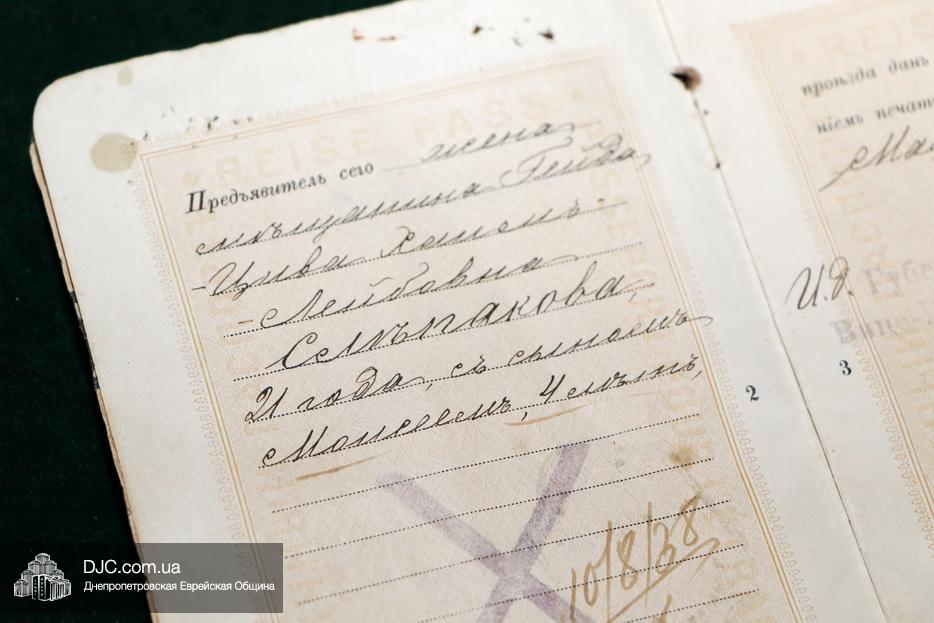 REISE PASS
Предъявитель сего жена
мѣщанина Гейда
-Цива Хаимъ-
-Лейбовна
Слѣпакова,
21 года, съ сыномъ
Моисеемъ, 4 лѣтъ,
10/8/38
2
проѣзда данъ
ніемъ печат
И.д. Губе
3
DJC.com.ua
Днепропетровская Еврейская Община